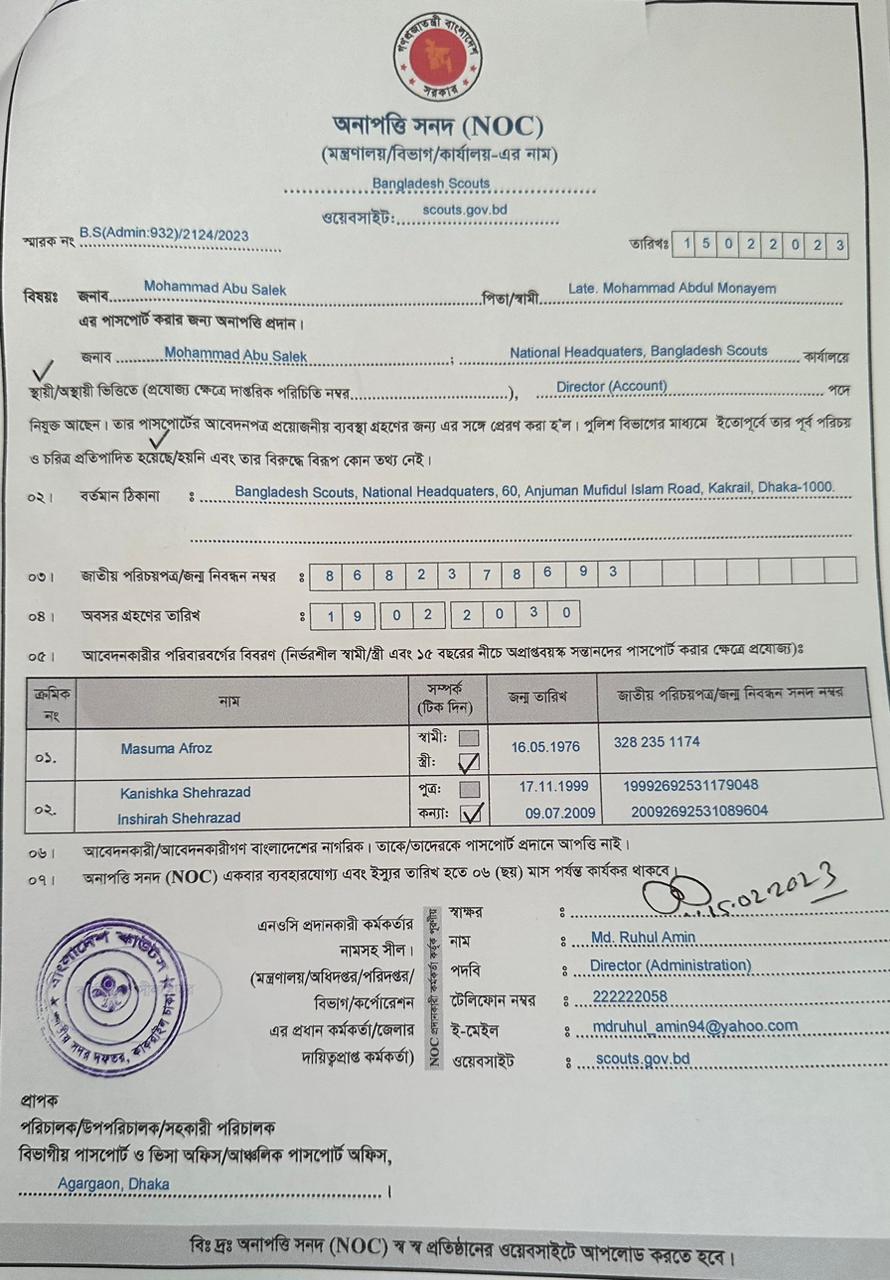 গণপ্রজাতন্ত্রী বাংলাদেশ
সরকার
অনাপত্তি সনদ (NOC)
(মন্ত্রণালয়/বিভাগ/কার্যালয়-এর নাম)
Bangladesh Scouts
ওয়েবসাইট: scouts.gov.bd
স্মারক নং B.S(Admin:932)/2124/2023 তারিখঃ 1 5 0 2 2 0 2 3
বিষয়ঃ জনাব Mohammad Abu Salek পিতা/স্বামী Late. Mohammad Abdul Monayem
এর পাসপোর্ট করার জন্য অনাপত্তি প্রদান।
জনাব Mohammad Abu Salek ; National Headquaters, Bangladesh Scouts কার্যালয়ে
স্থায়ী/অস্থায়ী ভিত্তিতে (প্রযোজ্য ক্ষেত্রে দাপ্তরিক পরিচিতি নম্বর), Director (Account) পদে
নিযুক্ত আছেন। তার পাসপোর্টের আবেদনপত্র প্রয়োজনীয় ব্যবস্থা গ্রহণের জন্য এর সঙ্গে প্রেরণ করা হ'ল। পুলিশ বিভাগের মাধ্যমে ইতোপূর্বে তার পূর্ব পরিচয়
ও চরিত্র প্রতিপাদিত হয়েছে/হয়নি এবং তার বিরুদ্ধে বিরূপ কোন তথ্য নেই।
০২। বর্তমান ঠিকানা : Bangladesh Scouts, National Headquaters, 60, Anjuman Mufidul Islam Road, Kakrail, Dhaka-1000.
০৩। জাতীয় পরিচয়পত্র/জন্ম নিবন্ধন নম্বর : 8 6 8 2 3 7 8 6 9 3
০৪। অবসর গ্রহণের তারিখ : 1 9 0 2 2 0 3 0
০৫। আবেদনকারীর পরিবারবর্গের বিবরণ (নির্ভরশীল স্বামী/স্ত্রী এবং ১৫ বছরের নীচে অপ্রাপ্তবয়স্ক সন্তানদের পাসপোর্ট করার ক্ষেত্রে প্রযোজ্য):
ক্রমিক নং নাম সম্পর্ক (টিক দিন) জন্ম তারিখ জাতীয় পরিচয়পত্র/জন্ম নিবন্ধন সনদ নম্বর
০১. Masuma Afroz স্বামী: স্ত্রী: 16.05.1976 328 235 1174
০২. Kanishka Shehrazad পুত্র: 17.11.1999 19992692531179048
Inshirah Shehrazad কন্যা: 09.07.2009 20092692531089604
০৬। আবেদনকারী/আবেদনকারীগণ বাংলাদেশের নাগরিক। তাকে/তাদেরকে পাসপোর্ট প্রদানে আপত্তি নাই।
০৭। অনাপত্তি সনদ (NOC) একবার ব্যবহারযোগ্য এবং ইস্যুর তারিখ হতে ০৬ (ছয়) মাস পর্যন্ত কার্যকর থাকবে।
এনওসি প্রদানকারী কর্মকর্তার
নামসহ সীল।
(মন্ত্রণালয়/অধিদপ্তর/পরিদপ্তর/
বিভাগ/কর্পোরেশন
এর প্রধান কর্মকর্তা/জেলার
দায়িত্বপ্রাপ্ত কর্মকর্তা)
NOC প্রদানকারী কর্মকর্তা কর্তৃক পূরণীয়
স্বাক্ষর : 15.02.2023
নাম : Md. Ruhul Amin
পদবি : Director (Administration)
টেলিফোন নম্বর : 222222058
ই-মেইল : mdruhul_amin94@yahoo.com
ওয়েবসাইট : scouts.gov.bd
বাংলাদেশ স্কাউটস
জাতীয় সদর দফতর, কাকরাইল ঢাকা
প্রাপক
পরিচালক/উপপরিচালক/সহকারী পরিচালক
বিভাগীয় পাসপোর্ট ও ভিসা অফিস/আঞ্চলিক পাসপোর্ট অফিস,
Agargaon, Dhaka।
বিঃ দ্রঃ অনাপত্তি সনদ (NOC) স্ব স্ব প্রতিষ্ঠানের ওয়েবসাইটে আপলোড করতে হবে।